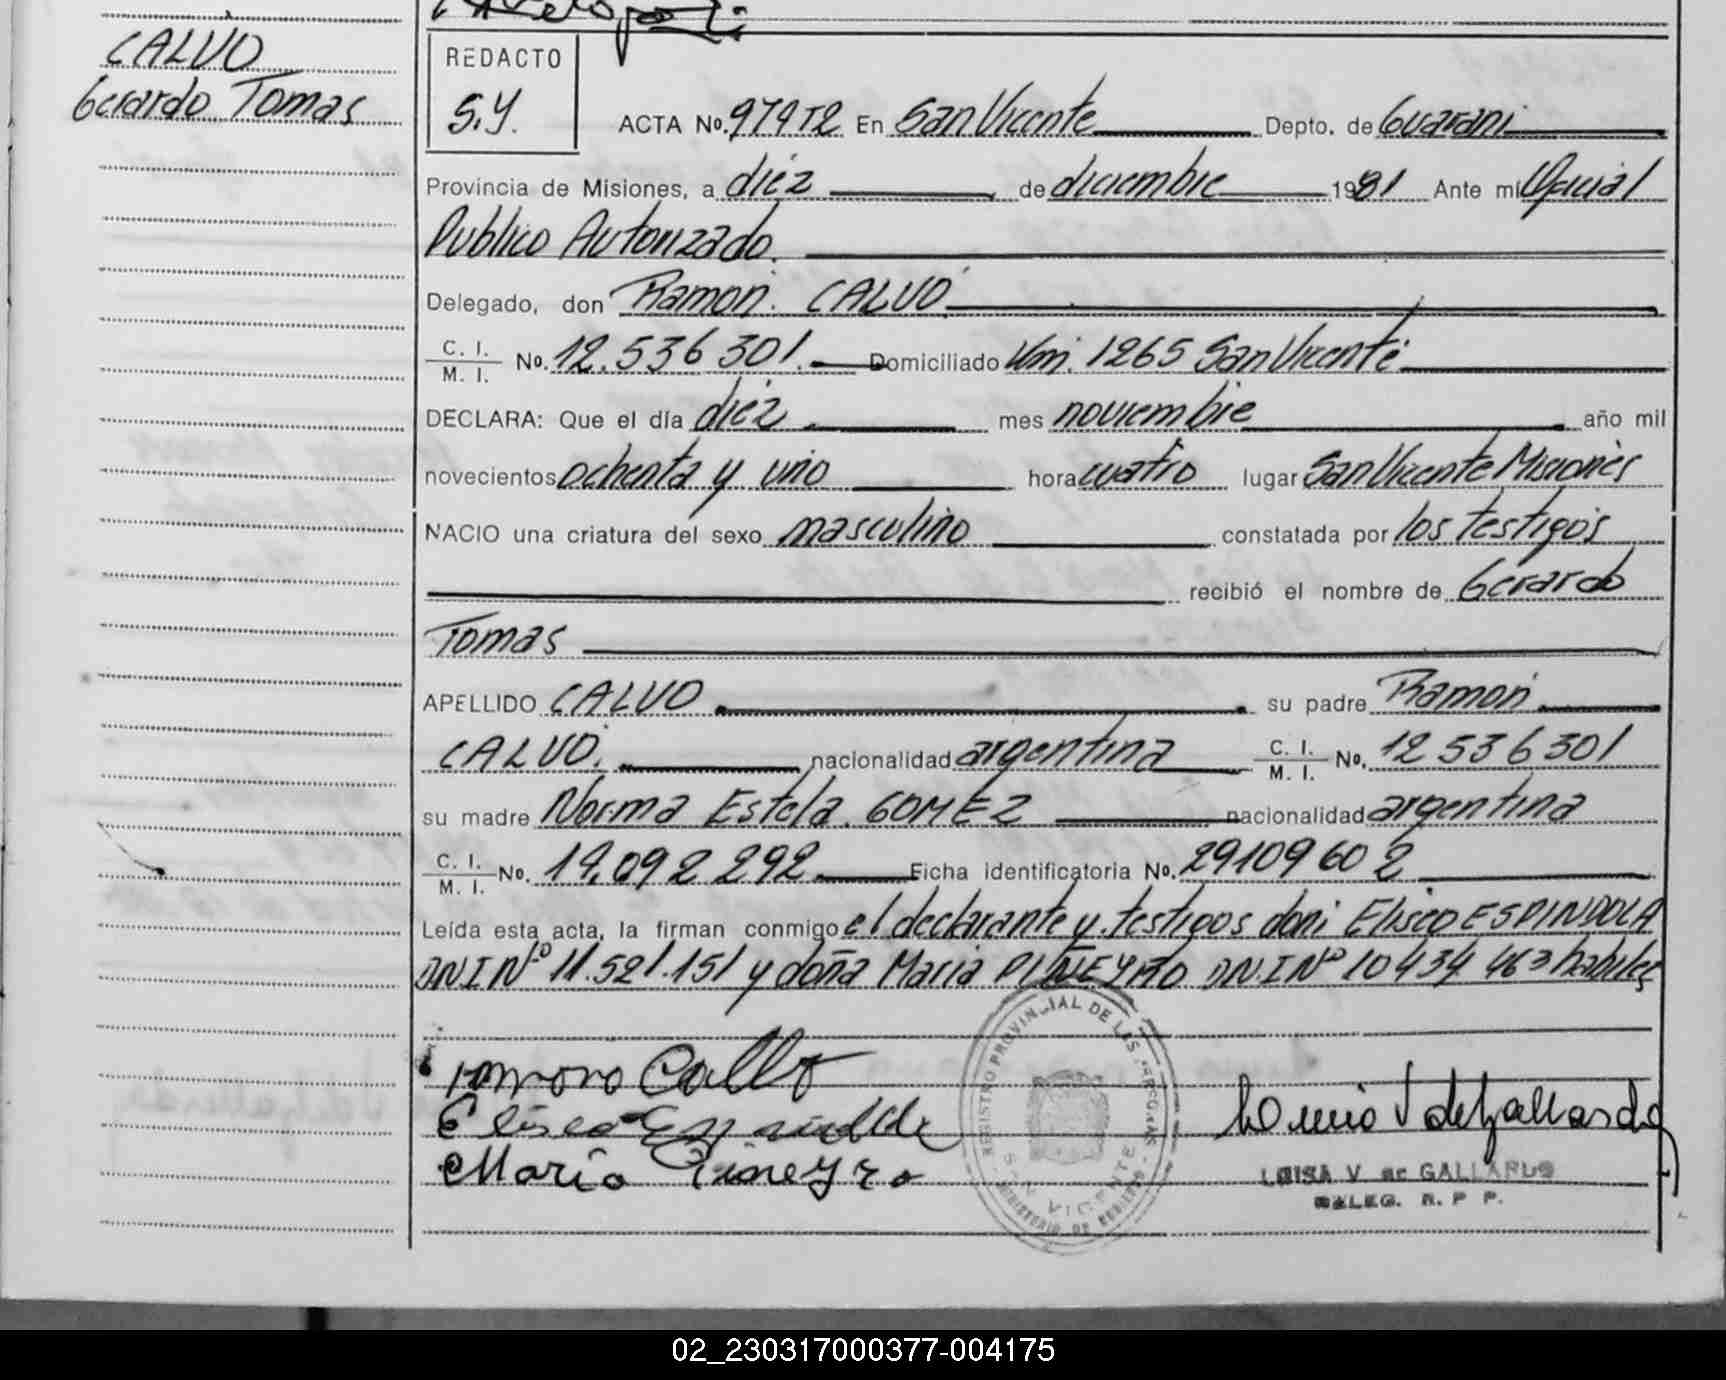 CALVO
Gerardo Tomas
REDACTO
S.Y.
ACTA No. 979T2 En San Vicente Depto. de Guarani
Provincia de Misiones, a diez de diciembre 1981 Ante mi Oficial
Publico Autorizado.
Delegado, don Ramon. CALVO
C. I.
M. I. No. 12.536 301. Domiciliado Km. 1265 San Vicente
DECLARA: Que el día diez mes noviembre año mil
novecientos ochenta y uno hora cuatro lugar San Vicente Misiones
NACIO una criatura del sexo masculino constatada por los testigos
recibió el nombre de Gerardo
Tomas
APELLIDO CALVO su padre Ramon
CALVO. nacionalidad argentina C. I.
M. I. No. 12 536 301
su madre Norma Estela GOMEZ nacionalidad argentina
C. I.
M. I. No. 14.092 292 Ficha identificatoria No. 29109602
Leída esta acta, la firman conmigo el declarante y testigos don Eliseo ESPINDOLA
DNI Nº 11.521.151 y doña Maria PIÑEYRO DN.I Nº 10 434 463 habiles
REGISTRO PROVINCIAL DE LAS PERSONAS
SAN VICENTE
MINISTERIO DE GOBIERNO
Maria Pineyro
LUISA V de GALLARDO
DELEG. R. P P.
02_230317000377-004175